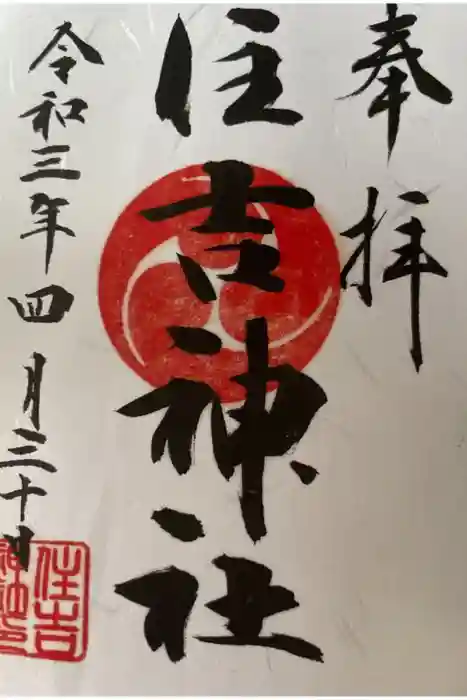 奉拝
住吉神社
令和三年四月三十日
住吉
神社印